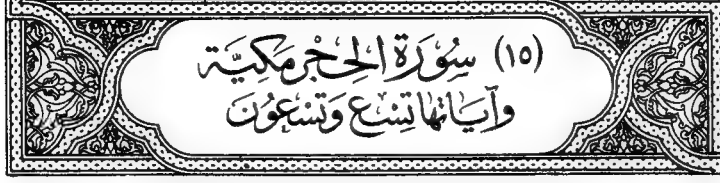 (١٥) سُورَةُ الحِجْرِ مَكِيَّة
وَآيَاتُهَا تِسْع وَتِسْعُونَ